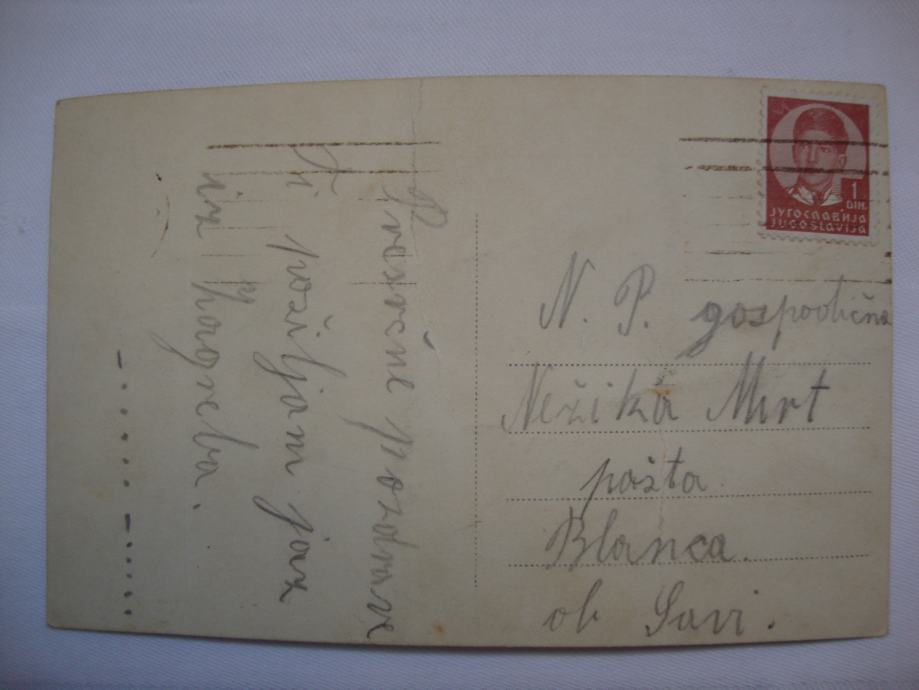 Prisrčne pozdrave
Ti pošiljam jaz
iz Zagreba.
1
DIN.
ЈУГОСЛАВИЈА
JUGOSLAVIJA
N. P. gospodična
Nežika Mirt
pošta
Blanca
ob Savi.